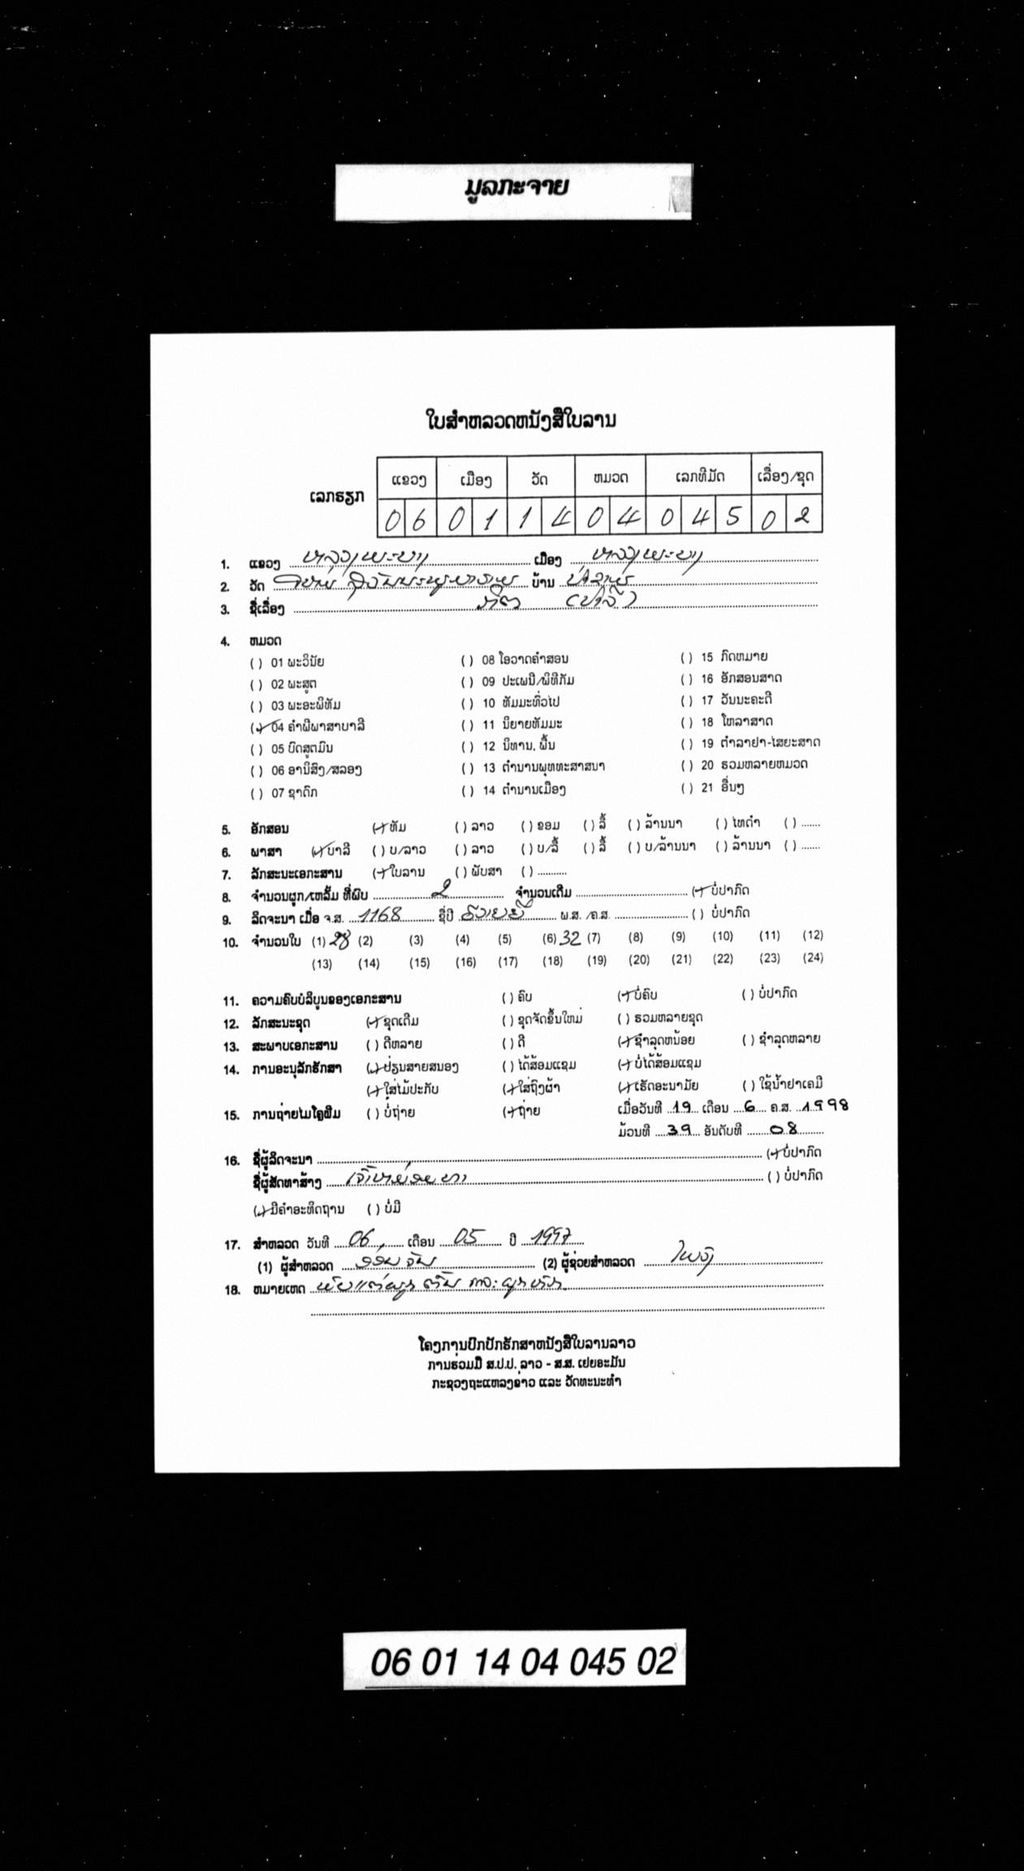 ມູລກະຈາຍ
ໃບສຳຫລວດຫນັງສືໃບລານ
ເລກຮຽກ
ແຂວງ ເມືອງ ວັດ ຫມວດ ເລກທີມັດ ເລື່ອງ/ຊຸດ
0 6 0 1 1 4 0 4 0 4 5 0 2
1. ແຂວງ ຫລວງພະບາງ ເມືອງ ຫລວງພະບາງ
2. ວັດ ບ້ານ
3. ຊື່ເລື່ອງ
4. ຫມວດ
( ) 01 ພະວິນັຍ ( ) 08 ໂອວາດຄຳສອນ ( ) 15 ກົດຫມາຍ
( ) 02 ພະສູດ ( ) 09 ປະເພນີ/ພິທີກັມ ( ) 16 ອັກສອນສາດ
( ) 03 ພະອະພິທັມ ( ) 10 ທັມມະທົ່ວໄປ ( ) 17 ວັນນະຄະດີ
(✓) 04 ຄຳພີພາສາບາລີ ( ) 11 ນິຍາຍທັມມະ ( ) 18 ໂຫລາສາດ
( ) 05 ບົດສູດມົນ ( ) 12 ນິທານ, ພື້ນ ( ) 19 ຕຳລາຢາ-ໄສຍະສາດ
( ) 06 ອານິສົງ/ສລອງ ( ) 13 ຕຳນານພຸທທະສາສນາ ( ) 20 ຮວມຫລາຍຫມວດ
( ) 07 ຊາດົກ ( ) 14 ຕຳນານເມືອງ ( ) 21 ອື່ນໆ
5. ອັກສອນ (✓) ທັມ ( ) ລາວ ( ) ຂອມ ( ) ລື້ ( ) ລ້ານນາ ( ) ໄທດຳ ( ) ......
6. ພາສາ (✓) ບາລີ ( ) ບ/ລາວ ( ) ລາວ ( ) ບ/ລື້ ( ) ລື້ ( ) ບ/ລ້ານນາ ( ) ລ້ານນາ ( ) ......
7. ລັກສະນະເອກະສານ (✓) ໃບລານ ( ) ພັບສາ ( ) ..........
8. ຈຳນວນຜູກ/ເຫລັ້ມ ທີ່ພົບ 2 ຈຳນວນເຕັມ (✓) ບໍ່ປາກົດ
9. ລິດຈະນາ ເມື່ອ ຈ.ສ. 1168 ຊື່ປີ ພ.ສ. /ຄ.ສ. ( ) ບໍ່ປາກົດ
10. ຈຳນວນໃບ (1) 28 (2) (3) (4) (5) (6) 32 (7) (8) (9) (10) (11) (12)
(13) (14) (15) (16) (17) (18) (19) (20) (21) (22) (23) (24)
11. ຄວາມຄົບບໍລິບູນຂອງເອກະສານ ( ) ຄົບ (✓) ບໍ່ຄົບ ( ) ບໍ່ປາກົດ
12. ລັກສະນະຊຸດ (✓) ຊຸດເດີມ ( ) ຊຸດຈັດຂຶ້ນໃຫມ່ ( ) ຮວມຫລາຍຊຸດ
13. ສະພາບເອກະສານ ( ) ດີຫລາຍ ( ) ດີ (✓) ຊຳລຸດຫນ້ອຍ ( ) ຊຳລຸດຫລາຍ
14. ການອະນຸລັກຮັກສາ (✓) ປ່ຽນສາຍສນອງ ( ) ໄດ້ສ້ອມແຊມ (✓) ບໍ່ໄດ້ສ້ອມແຊມ
(✓) ໃສ່ໄມ້ປະກັບ (✓) ໃສ່ຖົງຜ້າ (✓) ເຮັດອະນາມັຍ ( ) ໃຊ້ນ້ຳຢາເຄມີ
15. ການຖ່າຍໄມໂຄຼຟີມ ( ) ບໍ່ຖ່າຍ (✓) ຖ່າຍ ເມື່ອວັນທີ 19 ເດືອນ 6 ຄ.ສ. 1998
ມ້ວນທີ 39 ອັນດັບທີ 08
16. ຊື່ຜູ້ລິດຈະນາ (✓) ບໍ່ປາກົດ
ຊື່ຜູ້ສັດທາສ້າງ ( ) ບໍ່ປາກົດ
(✓) ມີຄຳອະທິດຖານ ( ) ບໍ່ມີ
17. ສຳຫລວດ ວັນທີ 06 ເດືອນ 05 ປີ 1997
(1) ຜູ້ສຳຫລວດ (2) ຜູ້ຊ່ວຍສຳຫລວດ
18. ຫມາຍເຫດ
ໂຄງການປົກປັກຮັກສາຫນັງສືໃບລານລາວ
ການຮ່ວມມື ສ.ປ.ປ. ລາວ - ສ.ສ. ເຢຍຣະມັນ
ກະຊວງຖະແຫລງຂ່າວ ແລະ ວັດທະນະທຳ
06 01 14 04 045 02